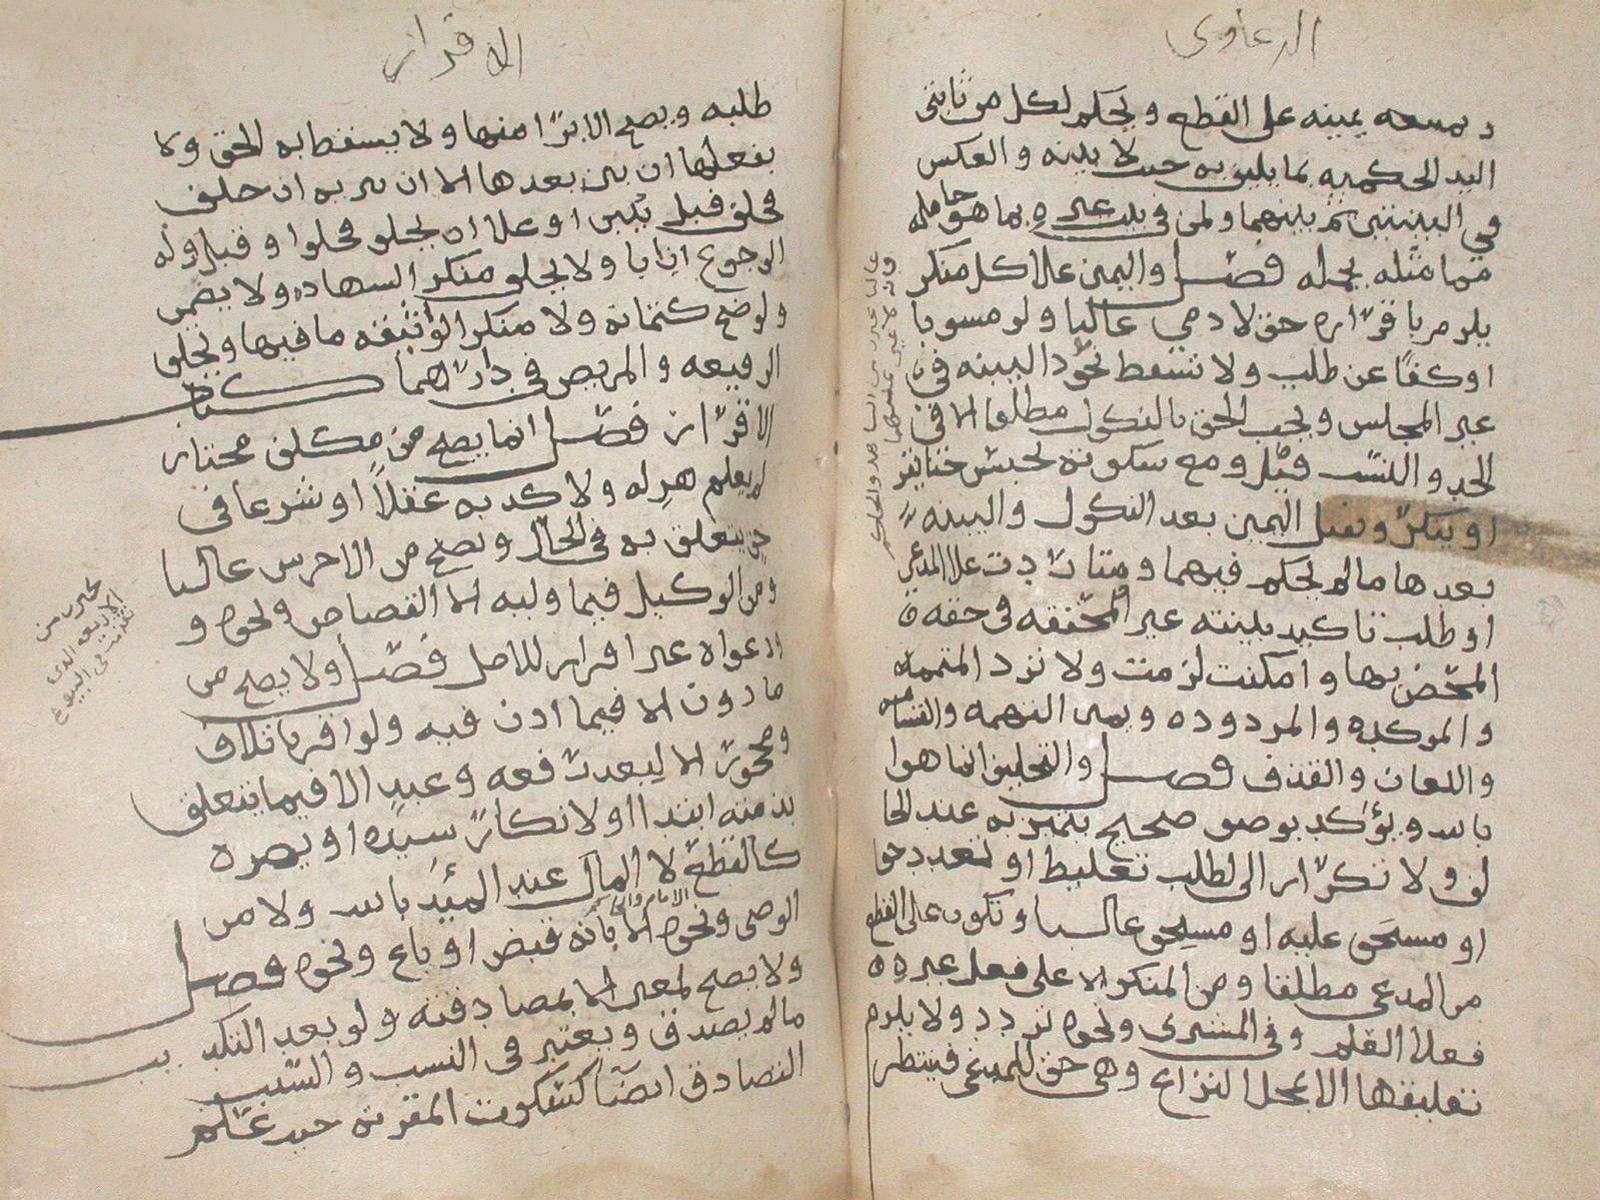 الدعاوى
د ىمىعه يمينه على القطع و يحكم لكل من ثابتى
اليد الحكميه بما يليق به حيث لا بينه و العكس
في البينتين ثم بينهما ولمن في بيت غيره بما هو حامله
مما مثله يحمله فصل واليمين علا كل منكر
يلزم باقراره حق لادمي غالبا ولو مسوبا
او كفا عن طلب ولا تسقط بوجود البينه في
غير المجلس ويجب الحق بالنكول مطلقا الا في
الحد والنسب قيل ومع سكوته يحبس حتا يقر
او ينكر وتقبل اليمين بعد النكول والبينه
بعدها مالم يحكم فيهما ومتا ردت علا المدعي
او طلب تاكيد بينته غير المحققه في حقه
المحض بها وامكنت لزمت ولا ترد المتممه
والموكده والمردوده ويمين التهمه والقسامه
واللعان والقذف فصل والتحليف انما هوا
بالله ويؤكد بوصف صحيح يتميز به عند الحا
لف ولا تكرار الى لطلب تغليظ او تعدد حق
او مستحق عليه او مستحق غالبا وتكون على القطع
من المدعى مطلقا ومن المنكر الا على فعل غيره
فعلا العلم وفي المشترى ونحوه تردد ولا يلزم
تعليقها الا بمحل النزاع وهى حق للمدعى فينتظر
الاقرار
طلبه ويصح الابرا منها ولا يسقط به الحق ولا
بفعلها ان بين بعدها الا ان يبريه ان حلف
فحلف قبل يبين او علا ان يحلف فحلف او قبل وله
الرجوع ان ابا ولا يحلف منكر الشهاده ولا يضمن
ولو صح كتمانه ولا منكر الوثيقه مافيها ويحلف
الرفيعه والمريض في دارهما كتاب
الاقرار فصل انما يصح من مكلف مختار
لم يعلم هزله ولا كذبه عقلا او شرعا في
حق يتعلق به في الحال ويصح من الاخرس غالبا
ومن الوكيل فيما وليه الا القصاص ونحوه و
ودعواه غير اقرار للاصل فصل ولا يصح من
ماذون الا فيما اذن فيه ولو اقر باتلاف
ومحجور الا لبعد رفعه وعبد الا فيما يتعلق
بذمته ابتدا او لانكار سيده او يضره
كالقطع لا المال عند المؤيد بالله ولا من
الوصى ونحوه الا بانه قبض او باع ونحوه فصل
ولا يصح لمعين الا بمصادقته ولو بعد التكذيب
مالم يصدق ويعتبر في النسب والسبب
التصادق ايضا كسكوت المقر به حيث علم